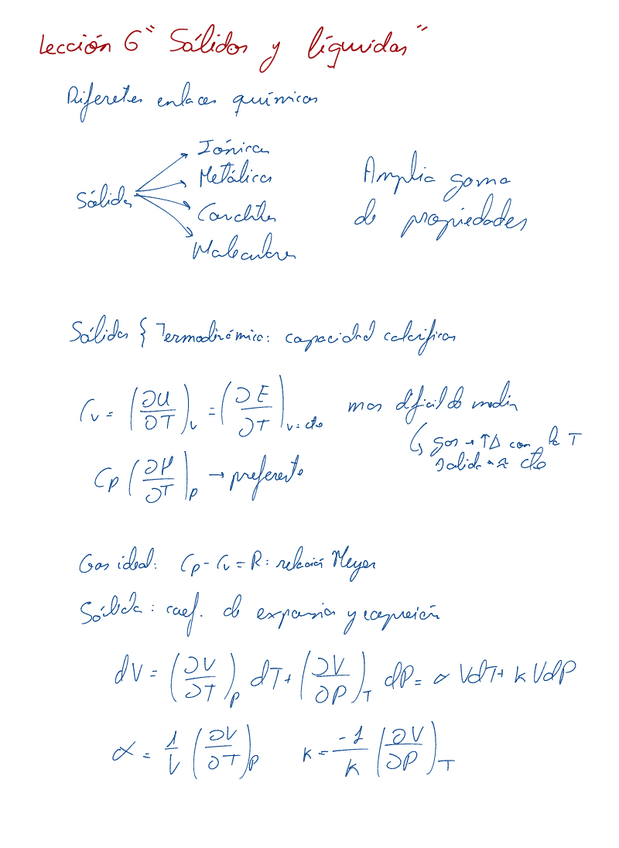 Lección 6 "Sólidos y líquidos"
Diferetes enlaces químicos
Sólidos
Iónicos
Metálicos
Covalentes
Moleculares
Amplia goma
de propiedades
Sólidos { Termodinámica: capacidad calorífica
Cv = (∂U/∂T)v = (∂E/∂T)v=cte mas dificil de medir
↳ gas → ↑Δ con la T
solido → ≈ cte
Cp (∂H/∂T)p → preferente
Gas ideal: Cp - Cv = R: relación Meyer
Sólido: coef. de expansion y compresión
dV = (∂V/∂T)p dT + (∂V/∂P)T dP = α VdT + k VdP
α = 1/V (∂V/∂T)p k = -1/k (∂V/∂P)T